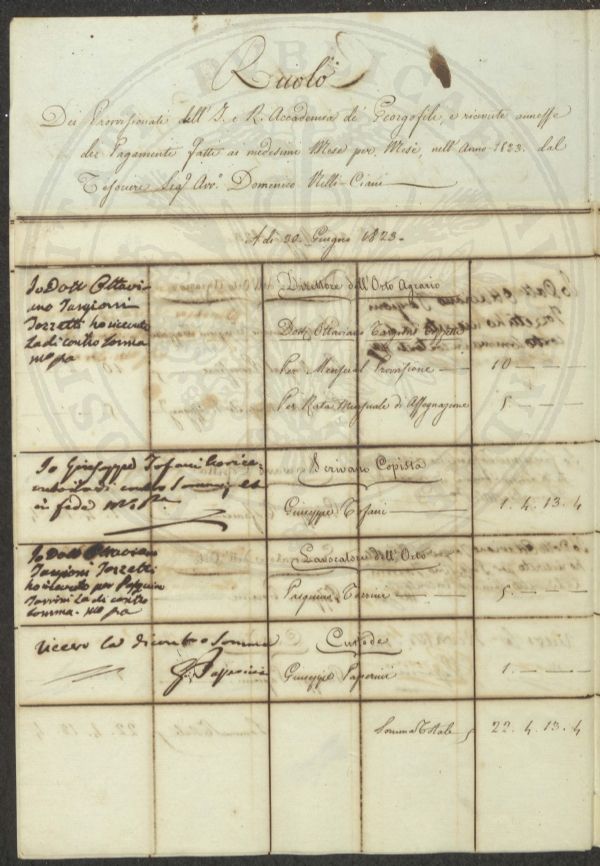 Ruolo
Dei Provvisionati dell'I. e R. Accademia de' Georgofili, e ricevute annesse
dei Pagamenti fatti ai medesimi Mese per Mese, nell'Anno 1823. dal
Tesoriere Sigr Avvo Domenico Nelli-Ciani
A dì 30. Giugno 1823.
Io Dott Ottavi-
ano Targioni
Tozzetti ho ricevuto
la di contro somma
mo pa
Direttore dell'Orto Agrario
Dottr Ottaviano Targioni Tozzetti
Per Mensual Provisione 10
Per Rata Mensuale di Assegnazione 5
Io Giuseppe Tofani
di contro somma
in fede
Scrivano Copista
Giuseppe Tofani 1. 4. 13. 4
Io Dott Ottaviano
Targioni Tozzetti
ho ricevuto per Pasquino
la di contro
somma. mo pa
Lavoratore dell'Orto
Pasquino 5.
la di contro Somma
Custode
Giuseppe Paperini 1.
Somma Totale 22. 4. 13. 4